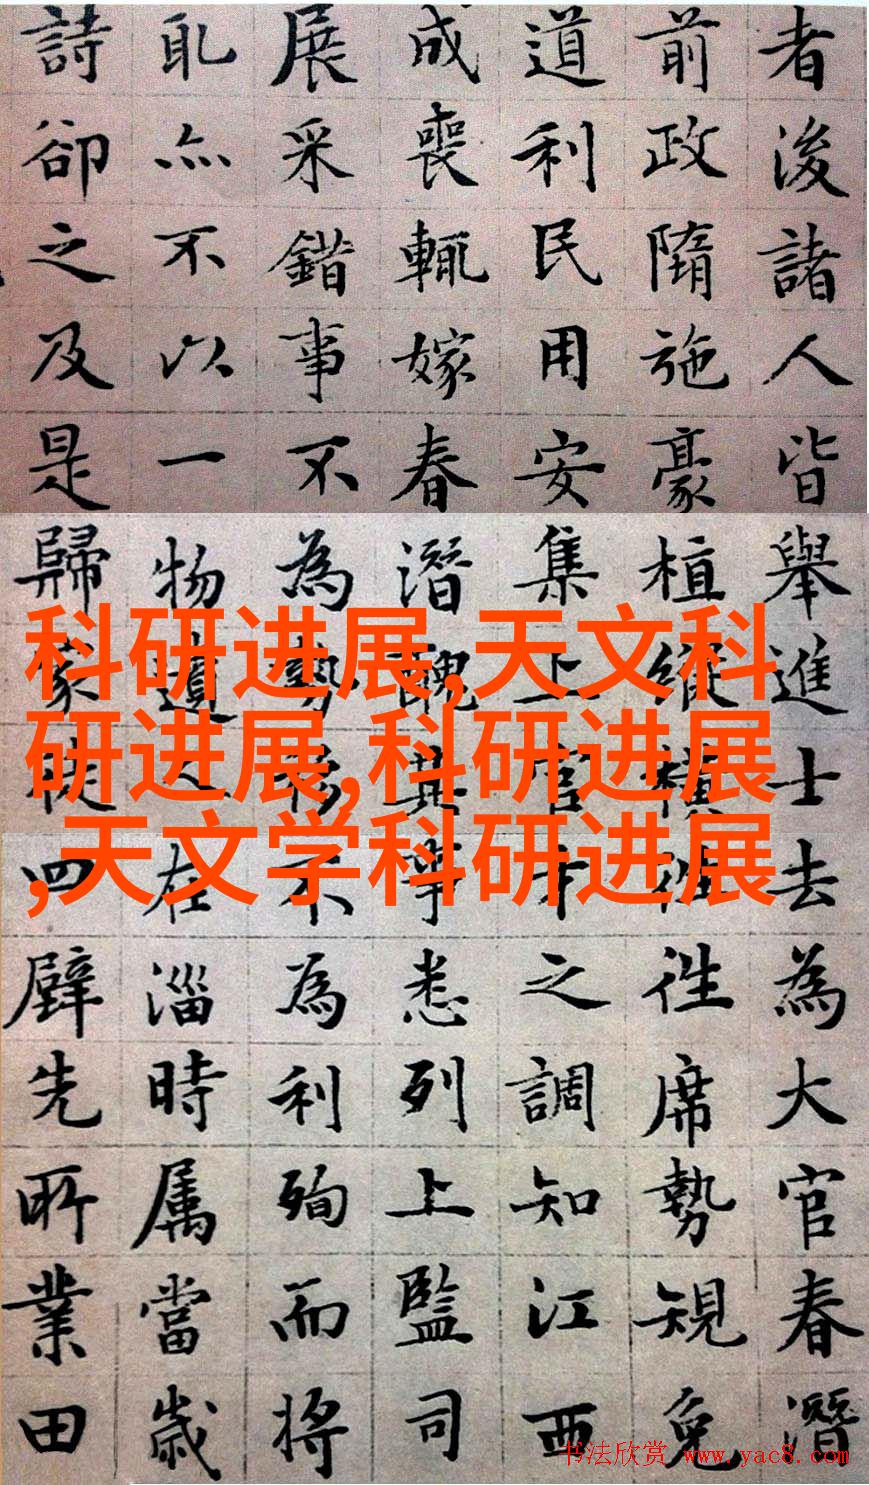 者後諸人皆舉進士去為大官春潛
前政隋施豪植縱橫往往席勢規免
道利民用安集上官才之調知江西
成喪輒嫁春潛醜其事悉列上監司
展采錯事不為勢移不為利殉而將
恥亦不以一物遺人在淄時属當歲
詩卻之及是歸家徒四壁先所業田
科研进展,天文科
研进展,科研进展
,天文学科研进展
书法欣赏 www.yac8.com